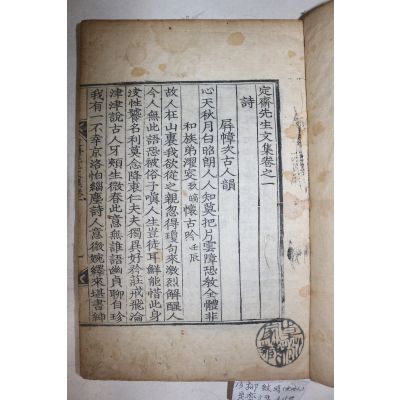 定齋先生文集卷之一
詩
屛幛次古人韻
心天秋月白昭朗人人知莫把片雲障恐敎全體非
和族弟濯叟 致皜 懷古吟 壬辰
故人枉山裏我欲從之親忽得瓊句來激烈解醒人
今人無此語恐被俗子嗔人生豈徒耳鮮能惜此身
淡性饕名利莫念降衷仁夫夫獨異好於莊戒飛淪
津津說古人牙頰生微春此意無誰語幽貞聊自珍
我有一不幸京洛怕緇塵詩人意微婉繹來堪書紳